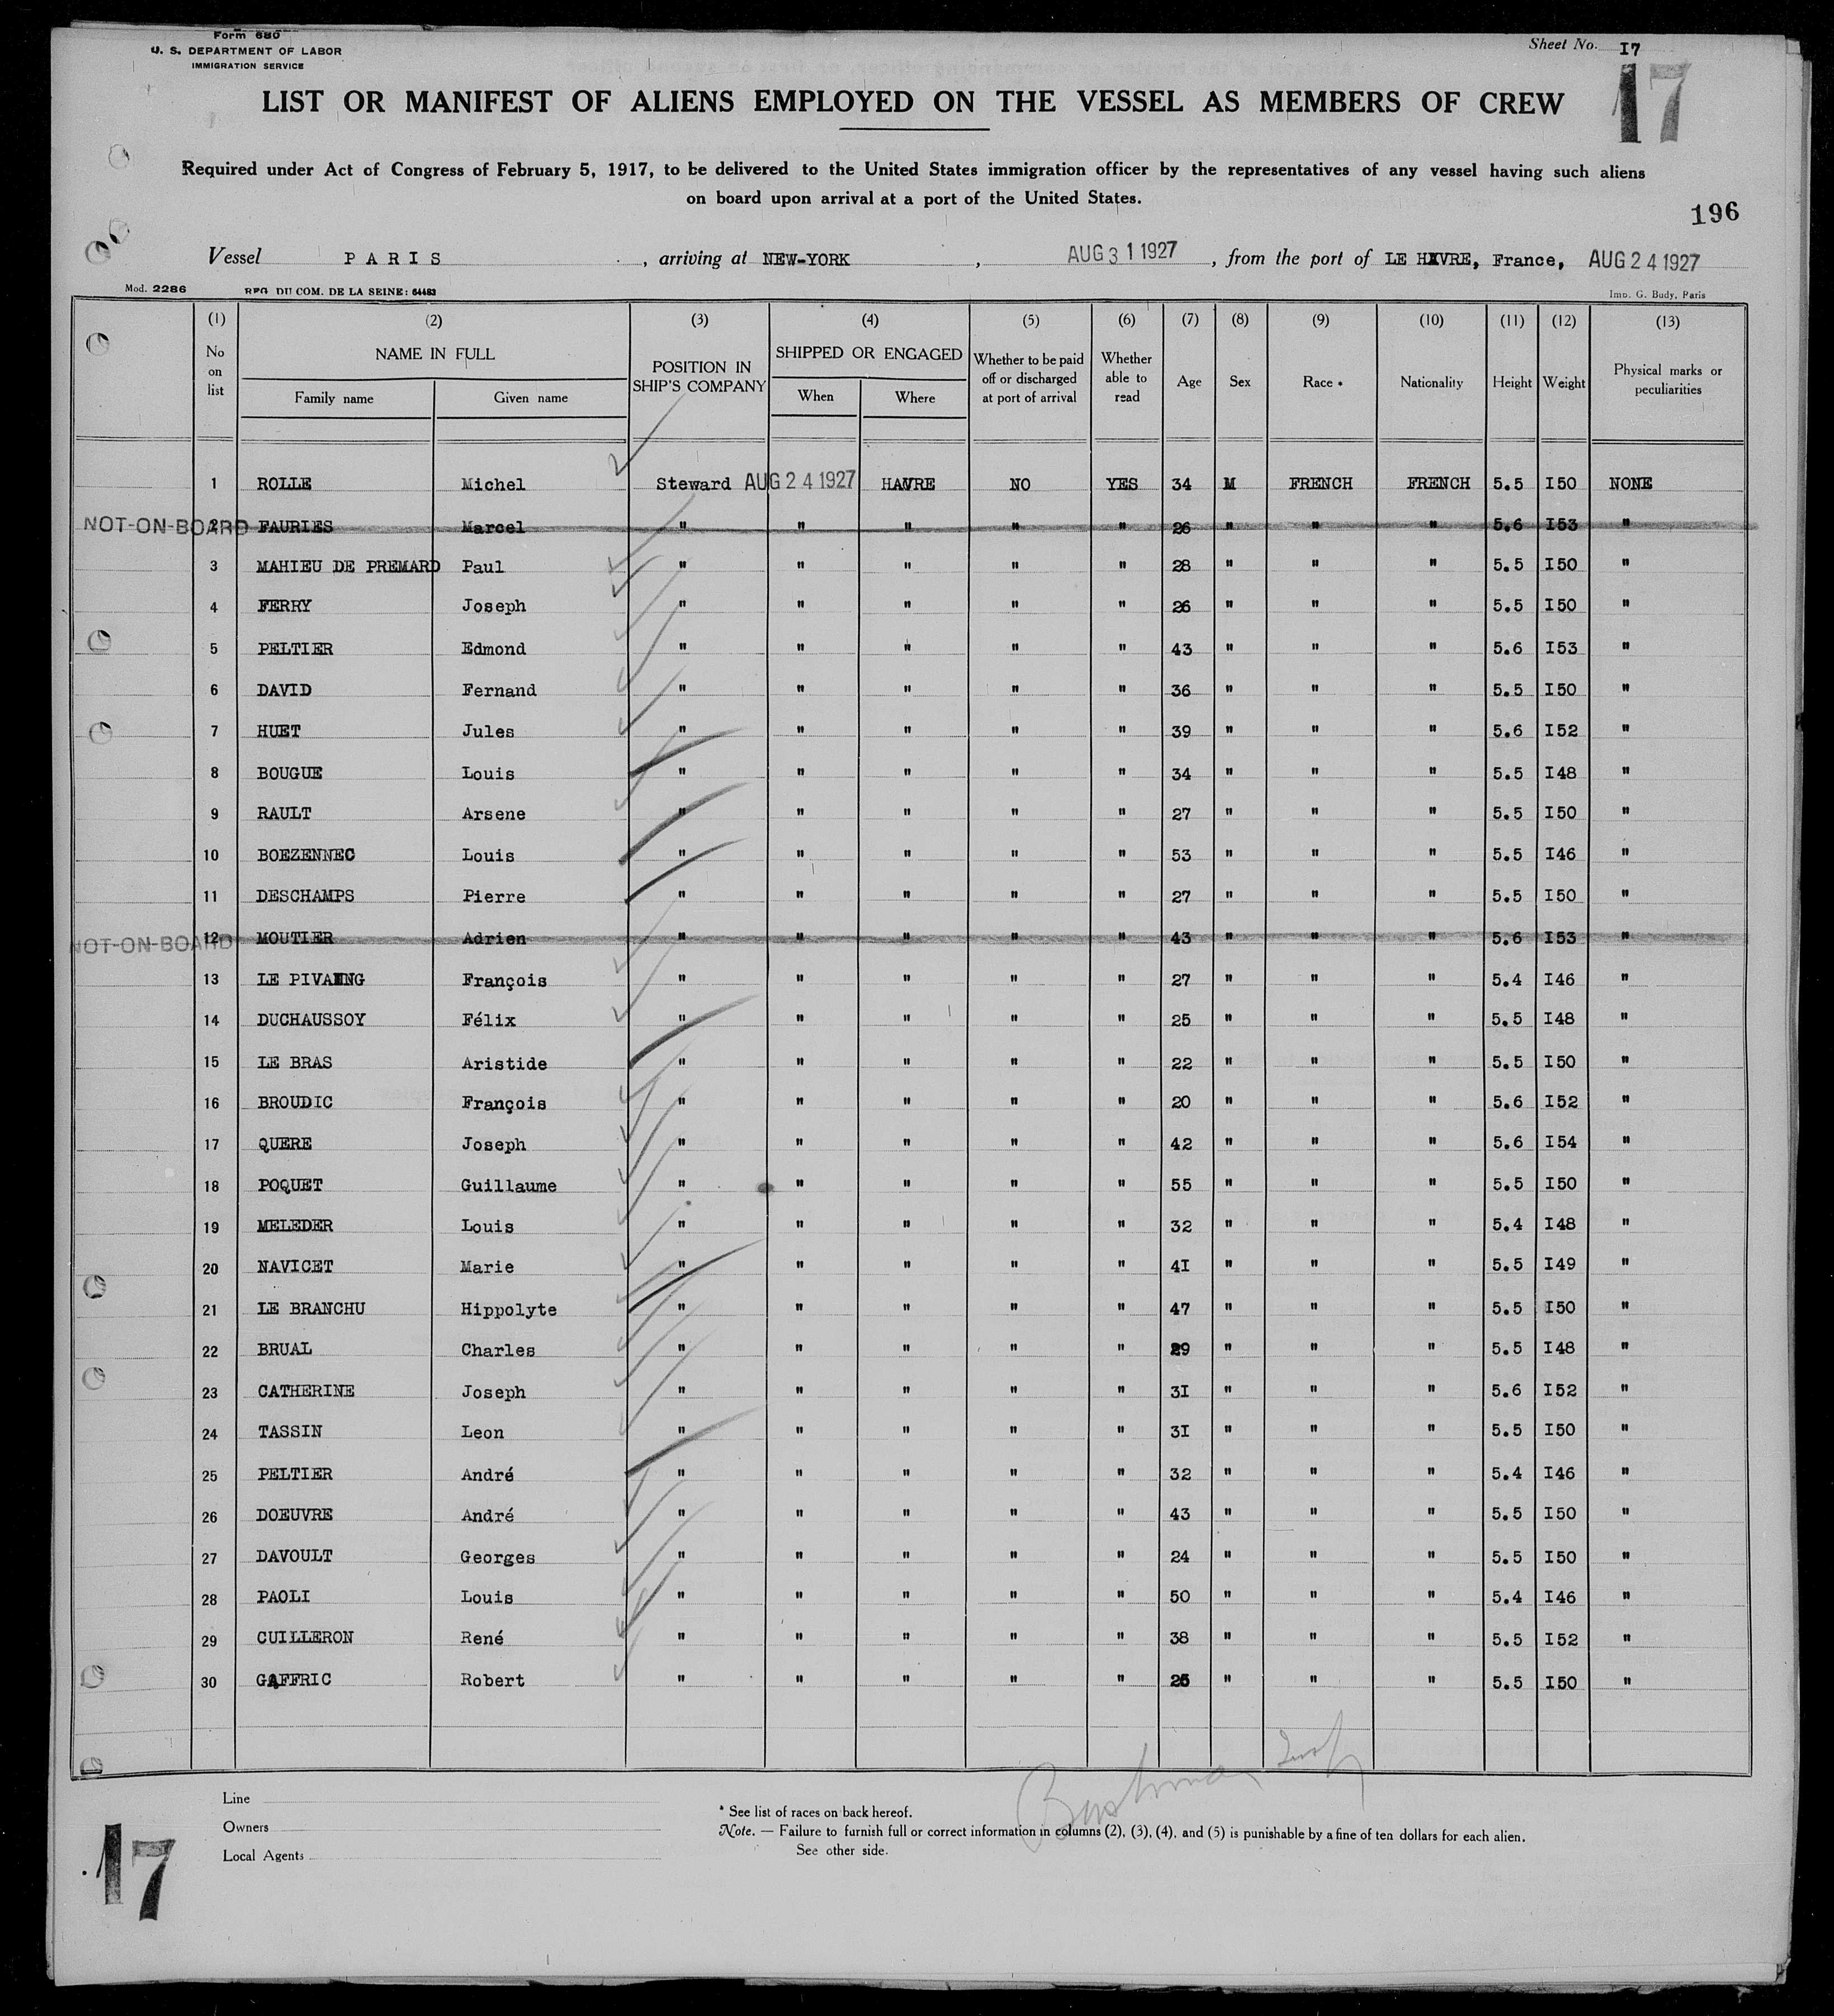 Form 680
U. S. DEPARTMENT OF LABOR
IMMIGRATION SERVICE
Sheet No. I7
17
LIST OR MANIFEST OF ALIENS EMPLOYED ON THE VESSEL AS MEMBERS OF CREW
Required under Act of Congress of February 5, 1917, to be delivered to the United States immigration officer by the representatives of any vessel having such aliens
on board upon arrival at a port of the United States.
196
Vessel PARIS , arriving at NEW-YORK , AUG 31 1927 , from the port of LE HAVRE, France, AUG 24 1927
Mod. 2286 REG. DU COM. DE LA SEINE: 64483 Imp. G. Budy, Paris
(1) (2) (3) (4) (5) (6) (7) (8) (9) (10) (11) (12) (13)
No on list NAME IN FULL Family name Given name POSITION IN SHIP'S COMPANY SHIPPED OR ENGAGED When Where Whether to be paid off or discharged at port of arrival Whether able to read Age Sex Race * Nationality Height Weight Physical marks or peculiarities
1 ROLLE Michel Steward AUG 24 1927 HAVRE NO YES 34 M FRENCH FRENCH 5.5 I50 NONE
NOT-ON-BOARD 2 FAURIES Marcel " " " " " 26 " " " 5.6 I53 "
3 MAHIEU DE PREMARD Paul " " " " " 28 " " " 5.5 I50 "
4 FERRY Joseph " " " " " 26 " " " 5.5 I50 "
5 PELTIER Edmond " " " " " 43 " " " 5.6 I53 "
6 DAVID Fernand " " " " " 36 " " " 5.5 I50 "
7 HUET Jules " " " " " 39 " " " 5.6 I52 "
8 BOUGUE Louis " " " " " 34 " " " 5.5 I48 "
9 RAULT Arsene " " " " " 27 " " " 5.5 I50 "
10 BOEZENNEC Louis " " " " " 53 " " " 5.5 I46 "
11 DESCHAMPS Pierre " " " " " 27 " " " 5.5 I50 "
NOT-ON-BOARD 12 MOUTIER Adrien " " " " " 43 " " " 5.6 I53 "
13 LE François " " " " " 27 " " " 5.4 I46 "
14 DUCHAUSSOY Félix " " " " " 25 " " " 5.5 I48 "
15 LE BRAS Aristide " " " " " 22 " " " 5.5 I50 "
16 BROUDIC François " " " " " 20 " " " 5.6 I52 "
17 QUERE Joseph " " " " " 42 " " " 5.6 I54 "
18 POQUET Guillaume " " " " " 55 " " " 5.5 I50 "
19 MELEDER Louis " " " " " 32 " " " 5.4 I48 "
20 NAVICET Marie " " " " " 4I " " " 5.5 I49 "
21 LE BRANCHU Hippolyte " " " " " 47 " " " 5.5 I50 "
22 BRUAL Charles " " " " " 29 " " " 5.5 I48 "
23 CATHERINE Joseph " " " " " 3I " " " 5.6 I52 "
24 TASSIN Leon " " " " " 3I " " " 5.5 I50 "
25 PELTIER André " " " " " 32 " " " 5.4 I46 "
26 DOEUVRE André " " " " " 43 " " " 5.5 I50 "
27 DAVOULT Georges " " " " " 24 " " " 5.5 I50 "
28 PAOLI Louis " " " " " 50 " " " 5.4 I46 "
29 CUILLERON René " " " " " 38 " " " 5.5 I52 "
30 GAFFRIC Robert " " " " " " " " 5.5 I50 "
Line
Owners
Local Agents
* See list of races on back hereof.
Note. — Failure to furnish full or correct information in columns (2), (3), (4), and (5) is punishable by a fine of ten dollars for each alien.
See other side.
17